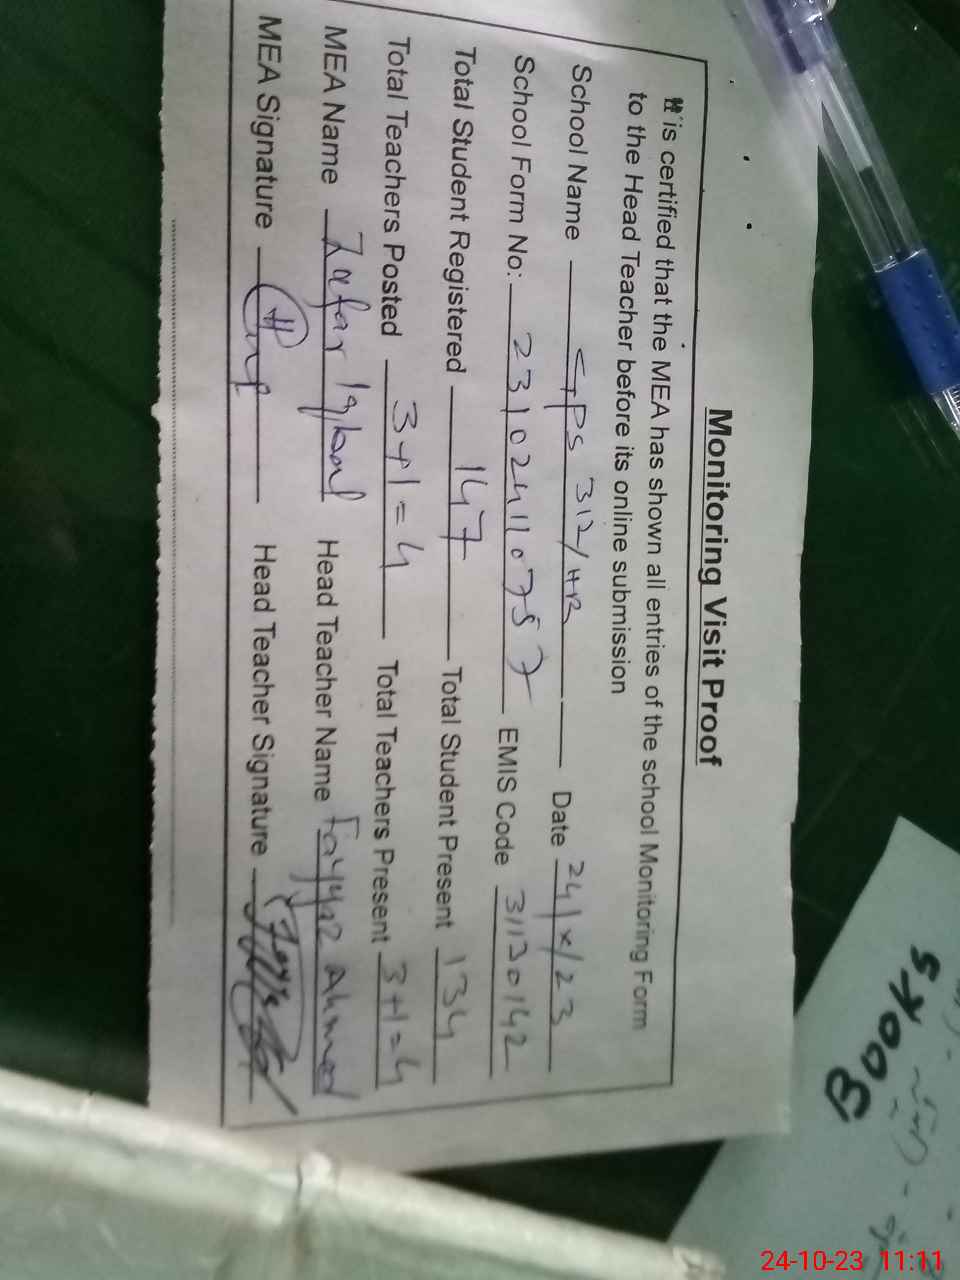 Monitoring Visit Proof
It is certified that the MEA has shown all entries of the school Monitoring Form
to the Head Teacher before its online submission
School Name GPS 312/HR Date 24/x/23
School Form No: 23102411037587 EMIS Code 31130142
Total Student Registered 147 Total Student Present 134
Total Teachers Posted 3+1=4 Total Teachers Present 3+1=4
MEA Name Zafar Iqbal Head Teacher Name Fayyaz Ahmed
MEA Signature Head Teacher Signature
BOOKS
24-10-23 11:11